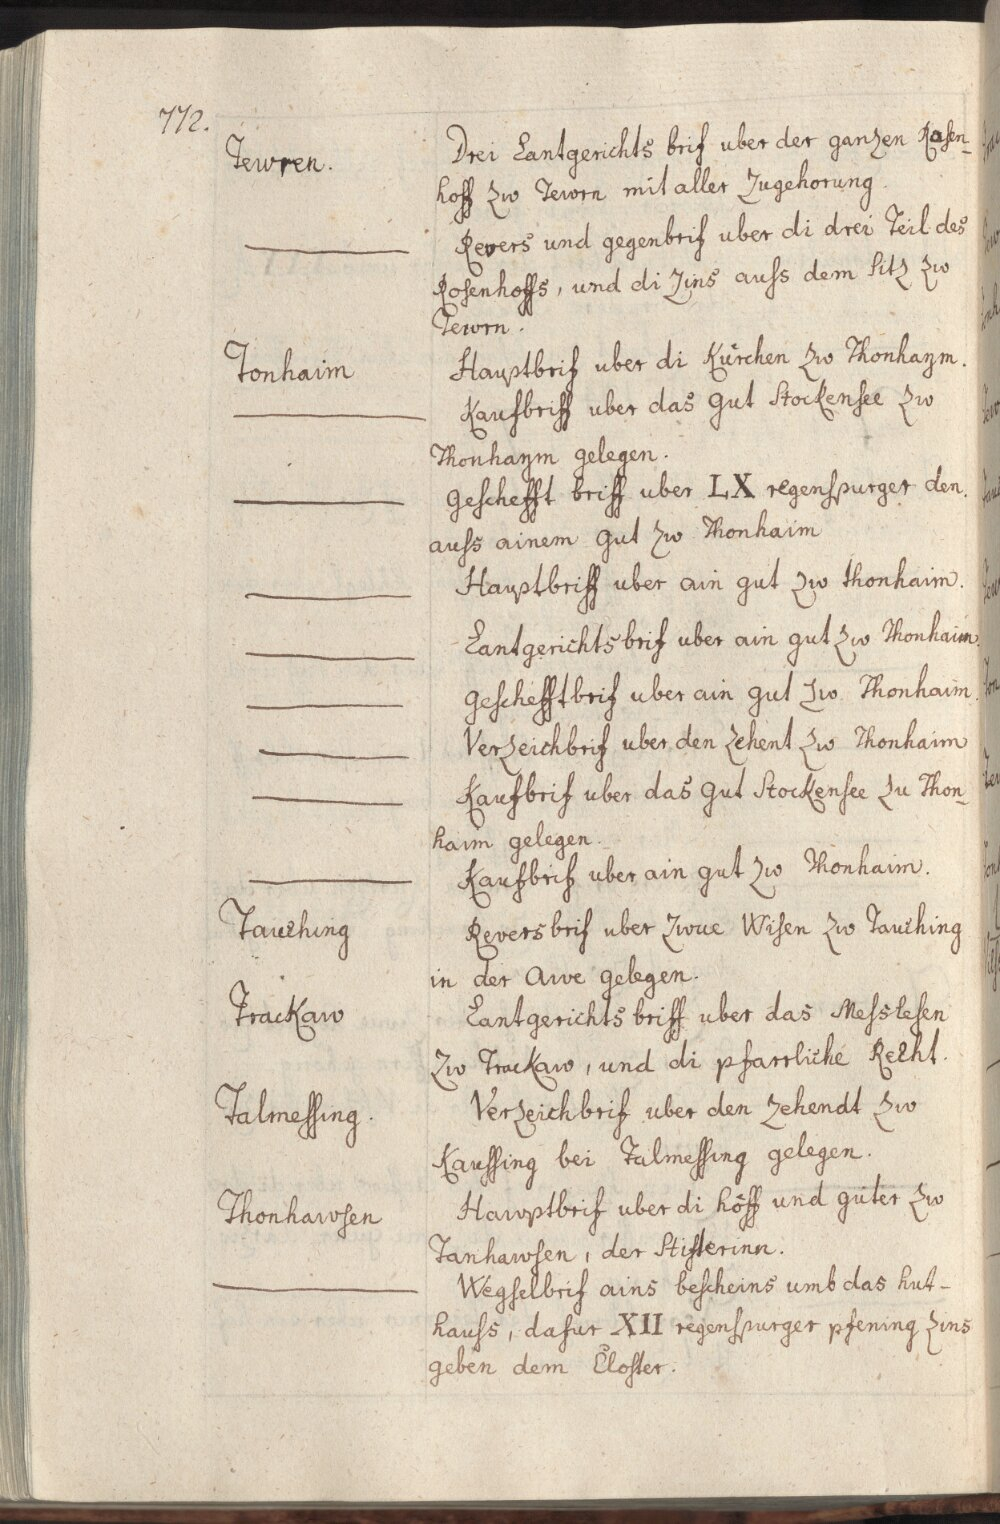 772.
Tewren. Drei Lantgerichts brif uber der ganzen Rosen-
hoff zw Tewrn mit aller Zugehorung.
Revers und gegenbrif uber di drei Teil des
Rosenhoffs, und di Zins auss dem Sitz zw
Tewrn.
Tonhaim Hauptbrif uber di Kürchen zw Thonhaym.
Kaufbriff uber das Gut Stockensee zw
Thonhaym gelegen.
Geschefft briff uber LX regenspurger den.
auss ainem Gut zw Thonhaim
Hauptbriff uber ain gut zw thonhaim.
Lantgerichtsbrif uber ain gut zw Thonhaim.
Geschefftbrif uber ain gut zw Thonhaim.
Verzeichbrif uber den zehent zw Thonhaim
Kaufbrif uber das Gut Stockensee zu Thon-
haim gelegen.
Kaufbrif uber ain gut zw Thonhaim.
Tauching Reversbrif uber zwue Wisen zw Tauching
in der Awe gelegen.
Trackaw Lantgerichts briff uber das Messlesen
zw Trackaw, und di pfarrliche Recht.
Talmessing. Verzeichbrif uber den zehendt zw
Kaussing bei Talmessing gelegen.
Thonhawsen Hawptbrif uber di höff und güter zw
Tanhawsen, der Stifterinn.
Wegselbrif ains bescheins umb das hut-
hauss, dafur XII regenspurger pfening Zins
geben dem Closter.